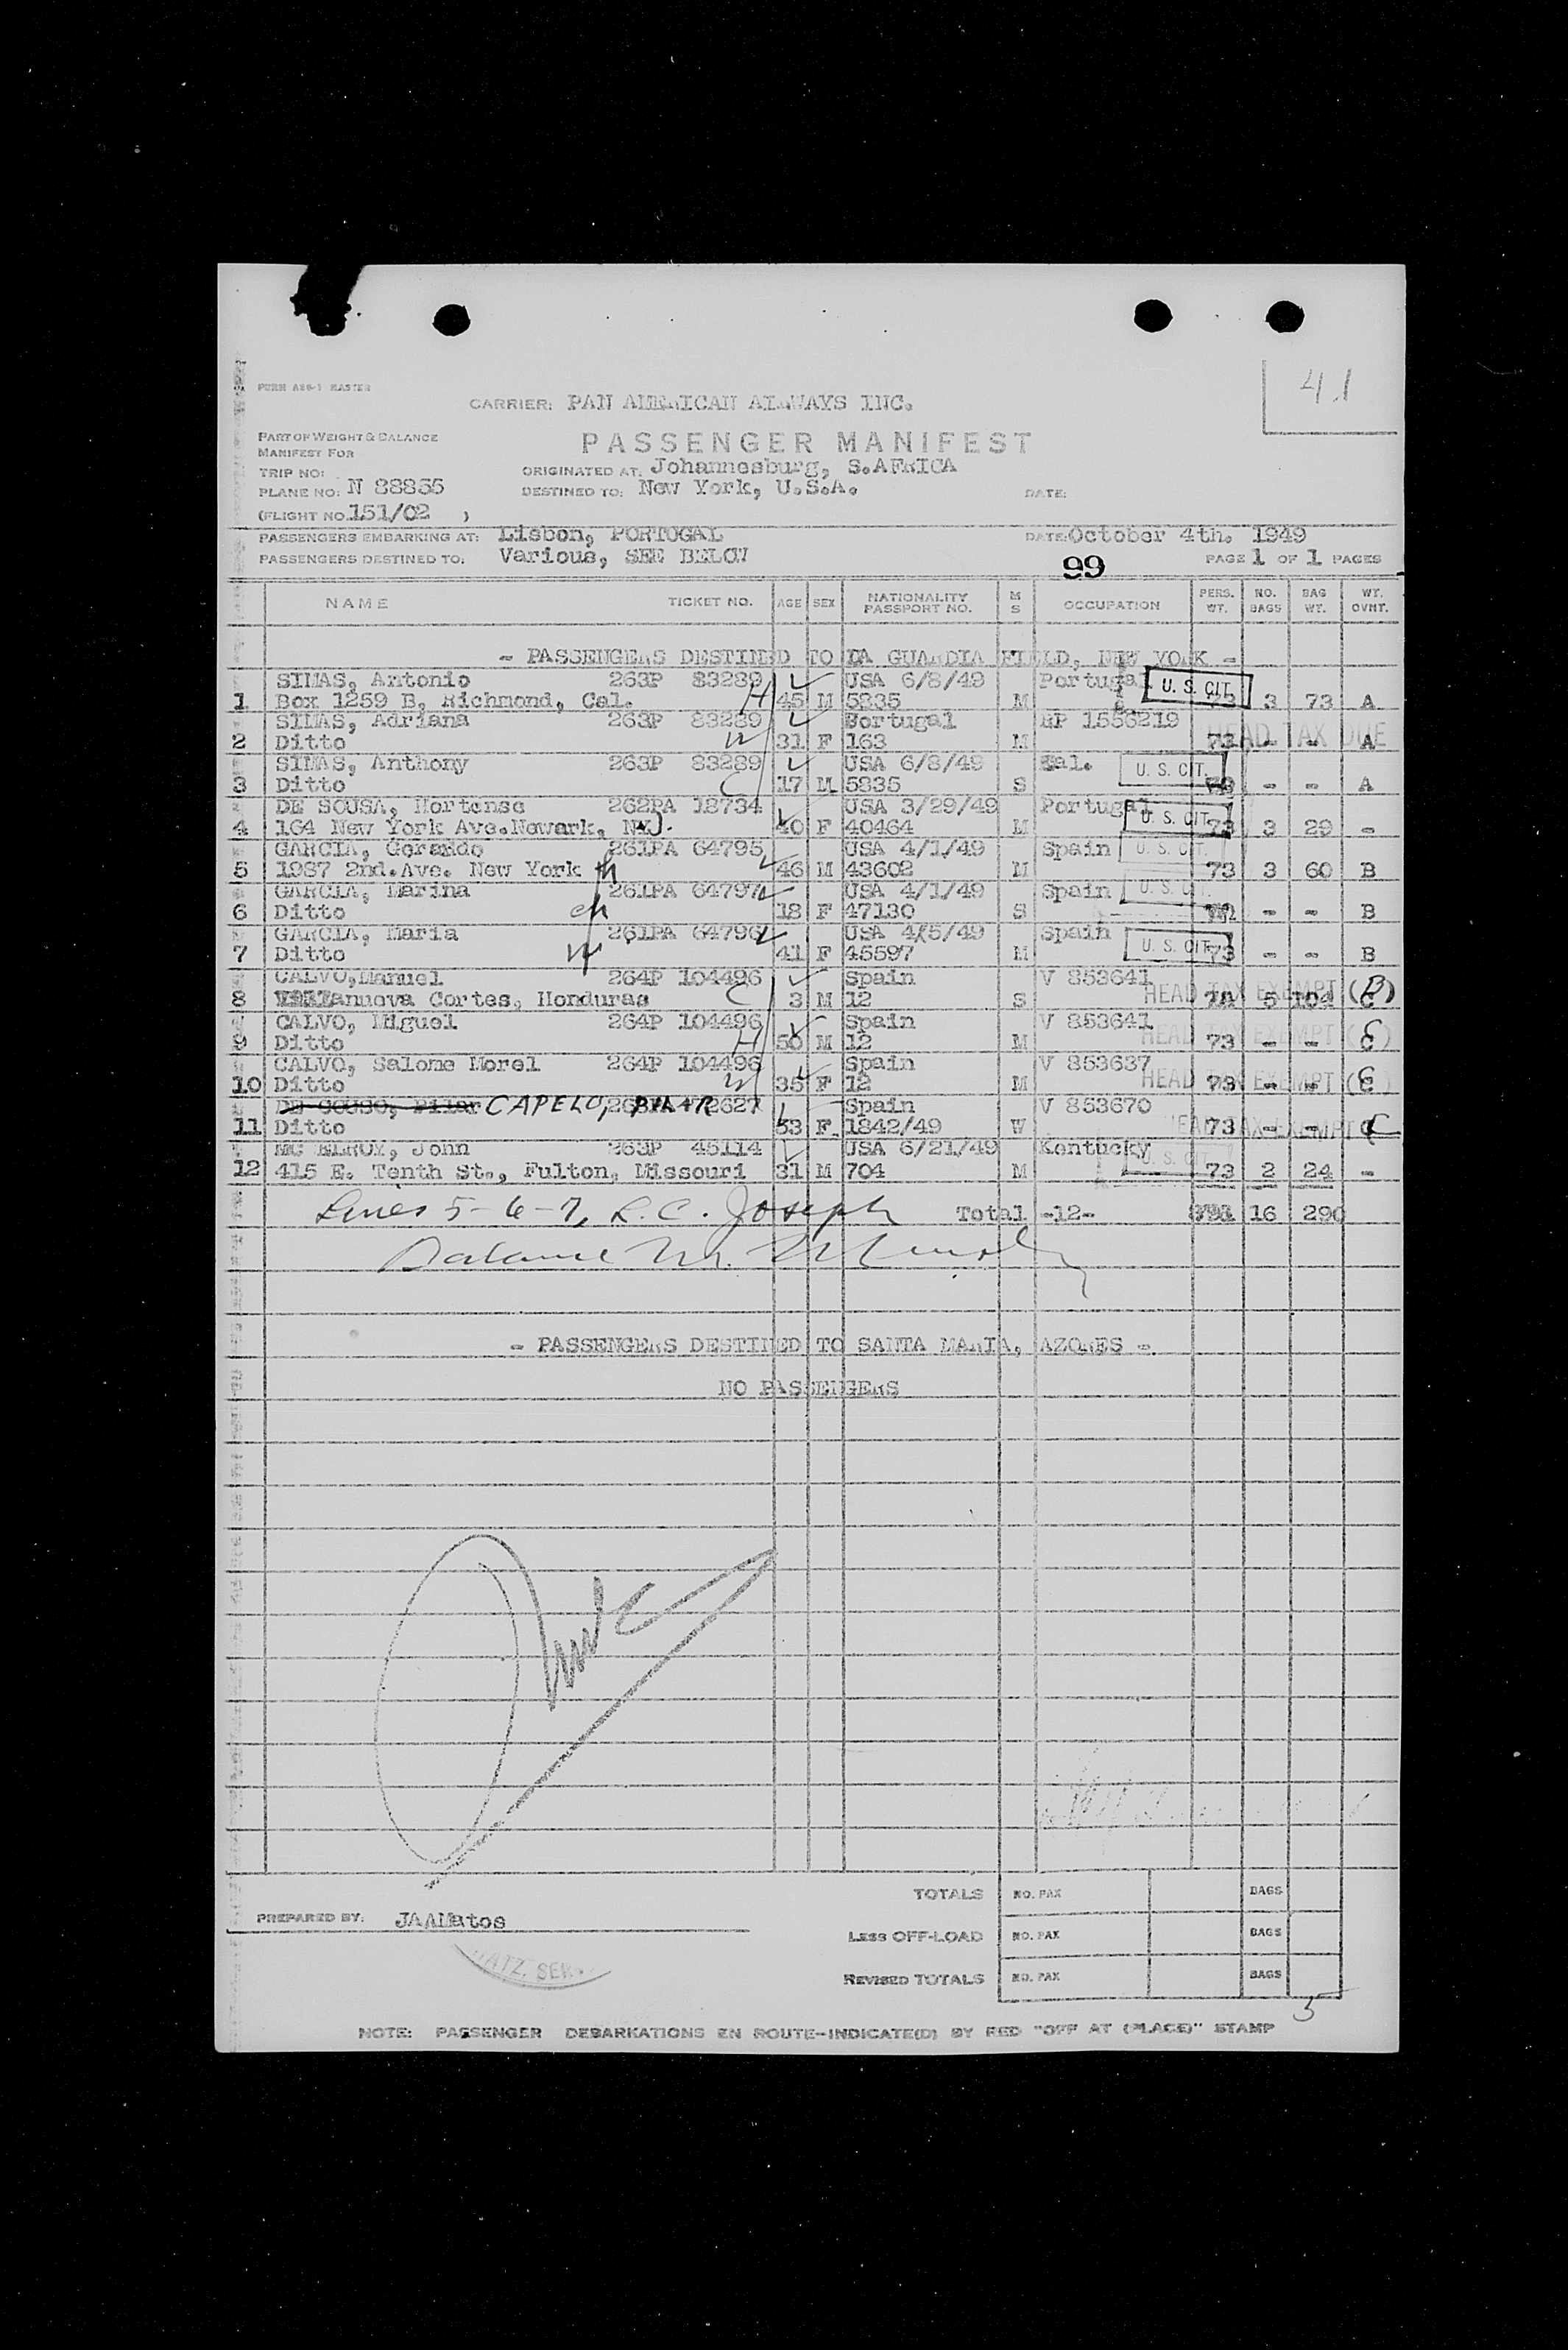 41
FORM
CARRIER: PAN AMERICAN AIRWAYS INC.
PART OF WEIGHT & BALANCE
MANIFEST FOR
PASSENGER MANIFEST
TRIP NO:
ORIGINATED AT: Johannesburg, S.AFRICA
PLANE NO: N 88855
DESTINED TO: New York, U.S.A.
DATE:
(FLIGHT NO. 151/02 )
PASSENGERS EMBARKING AT: Lisbon, PORTUGAL DATE: October 4th. 1949
PASSENGERS DESTINED TO: Various, SEE BELOW 99 PAGE 1 OF 1 PAGES
NAME TICKET NO. AGE SEX NATIONALITY PASSPORT NO. M S OCCUPATION PERS. WT. NO. BAGS BAG WT. WT. OVNT.
- PASSENGERS DESTINED TO LA GUARDIA FIELD, NEW YORK -
SIMAS, Antonio 263P 83289 USA 6/8/49 Portugal U. S. CIT.
1 Box 1259 B, Richmond, Cal. H 45 M 5835 M 73 3 73 A
SIMAS, Adriana 263P 83289 Portugal RP 1556219
2 Ditto W 31 F 163 M 73 HEAD TAX DUE - - A
SIMAS, Anthony 263P 83289 USA 6/8/49 Cal. U. S. CIT.
3 Ditto C 17 M 5835 S - - A
DE SOUSA, Hortense 262PA 18734 USA 3/29/49 Portugal U. S. CIT.
4 164 New York Ave.Newark, NJ. 40 F 40464 M 73 3 29 -
GARCIA, Gerardo 261PA 64795 USA 4/1/49 Spain U. S. CIT.
5 1987 2nd.Ave. New York H 46 M 43602 M 73 3 60 B
GARCIA, Marina 261PA 64797 USA 4/1/49 Spain U. S. CIT.
6 Ditto ch 18 F 47130 S - - B
GARCIA, Maria 261PA 64796 USA 4/5/49 Spain U. S. CIT.
7 Ditto W 41 F 45597 M 73 - - B
CALVO,Manuel 264P 104496 Spain V 853641
8 Villanueva Cortes, Honduras C 3 M 12 S HEAD TAX EXEMPT (B) 5 104 C
CALVO, Miguel 264P 104496 Spain V 853641
9 Ditto H 50 M 12 M HEAD TAX EXEMPT (C) 73 - - C
CALVO, Salome Morel 264P 104496 Spain V 853637
10 Ditto W 35 F 12 M HEAD TAX EXEMPT (C) 73 - - C
DE SOUSO, Pilar CAPELO, PILAR Spain V 853670
11 Ditto 53 F. 1842/49 W HEAD TAX EXEMPT 73 - - C
MC ELROY, John 263P 45114 USA 6/21/49 Kentucky U. S. CIT.
12 415 E. Tenth St., Fulton, Missouri 31 M 704 M 73 2 24 -
Lines 5-6-7, L.C. Joseph Total -12- 16 290
Balance
- PASSENGERS DESTINED TO SANTA MARIA, AZORES -
NO PASSENGERS
TOTALS NO. PAX BAGS
PREPARED BY: JAAMatos
LESS OFF-LOAD NO. PAX BAGS
REVISED TOTALS NO. PAX BAGS
5
NOTE: PASSENGER DEBARKATIONS EN ROUTE-INDICATE(D) BY RED "OFF AT (PLACE)" STAMP